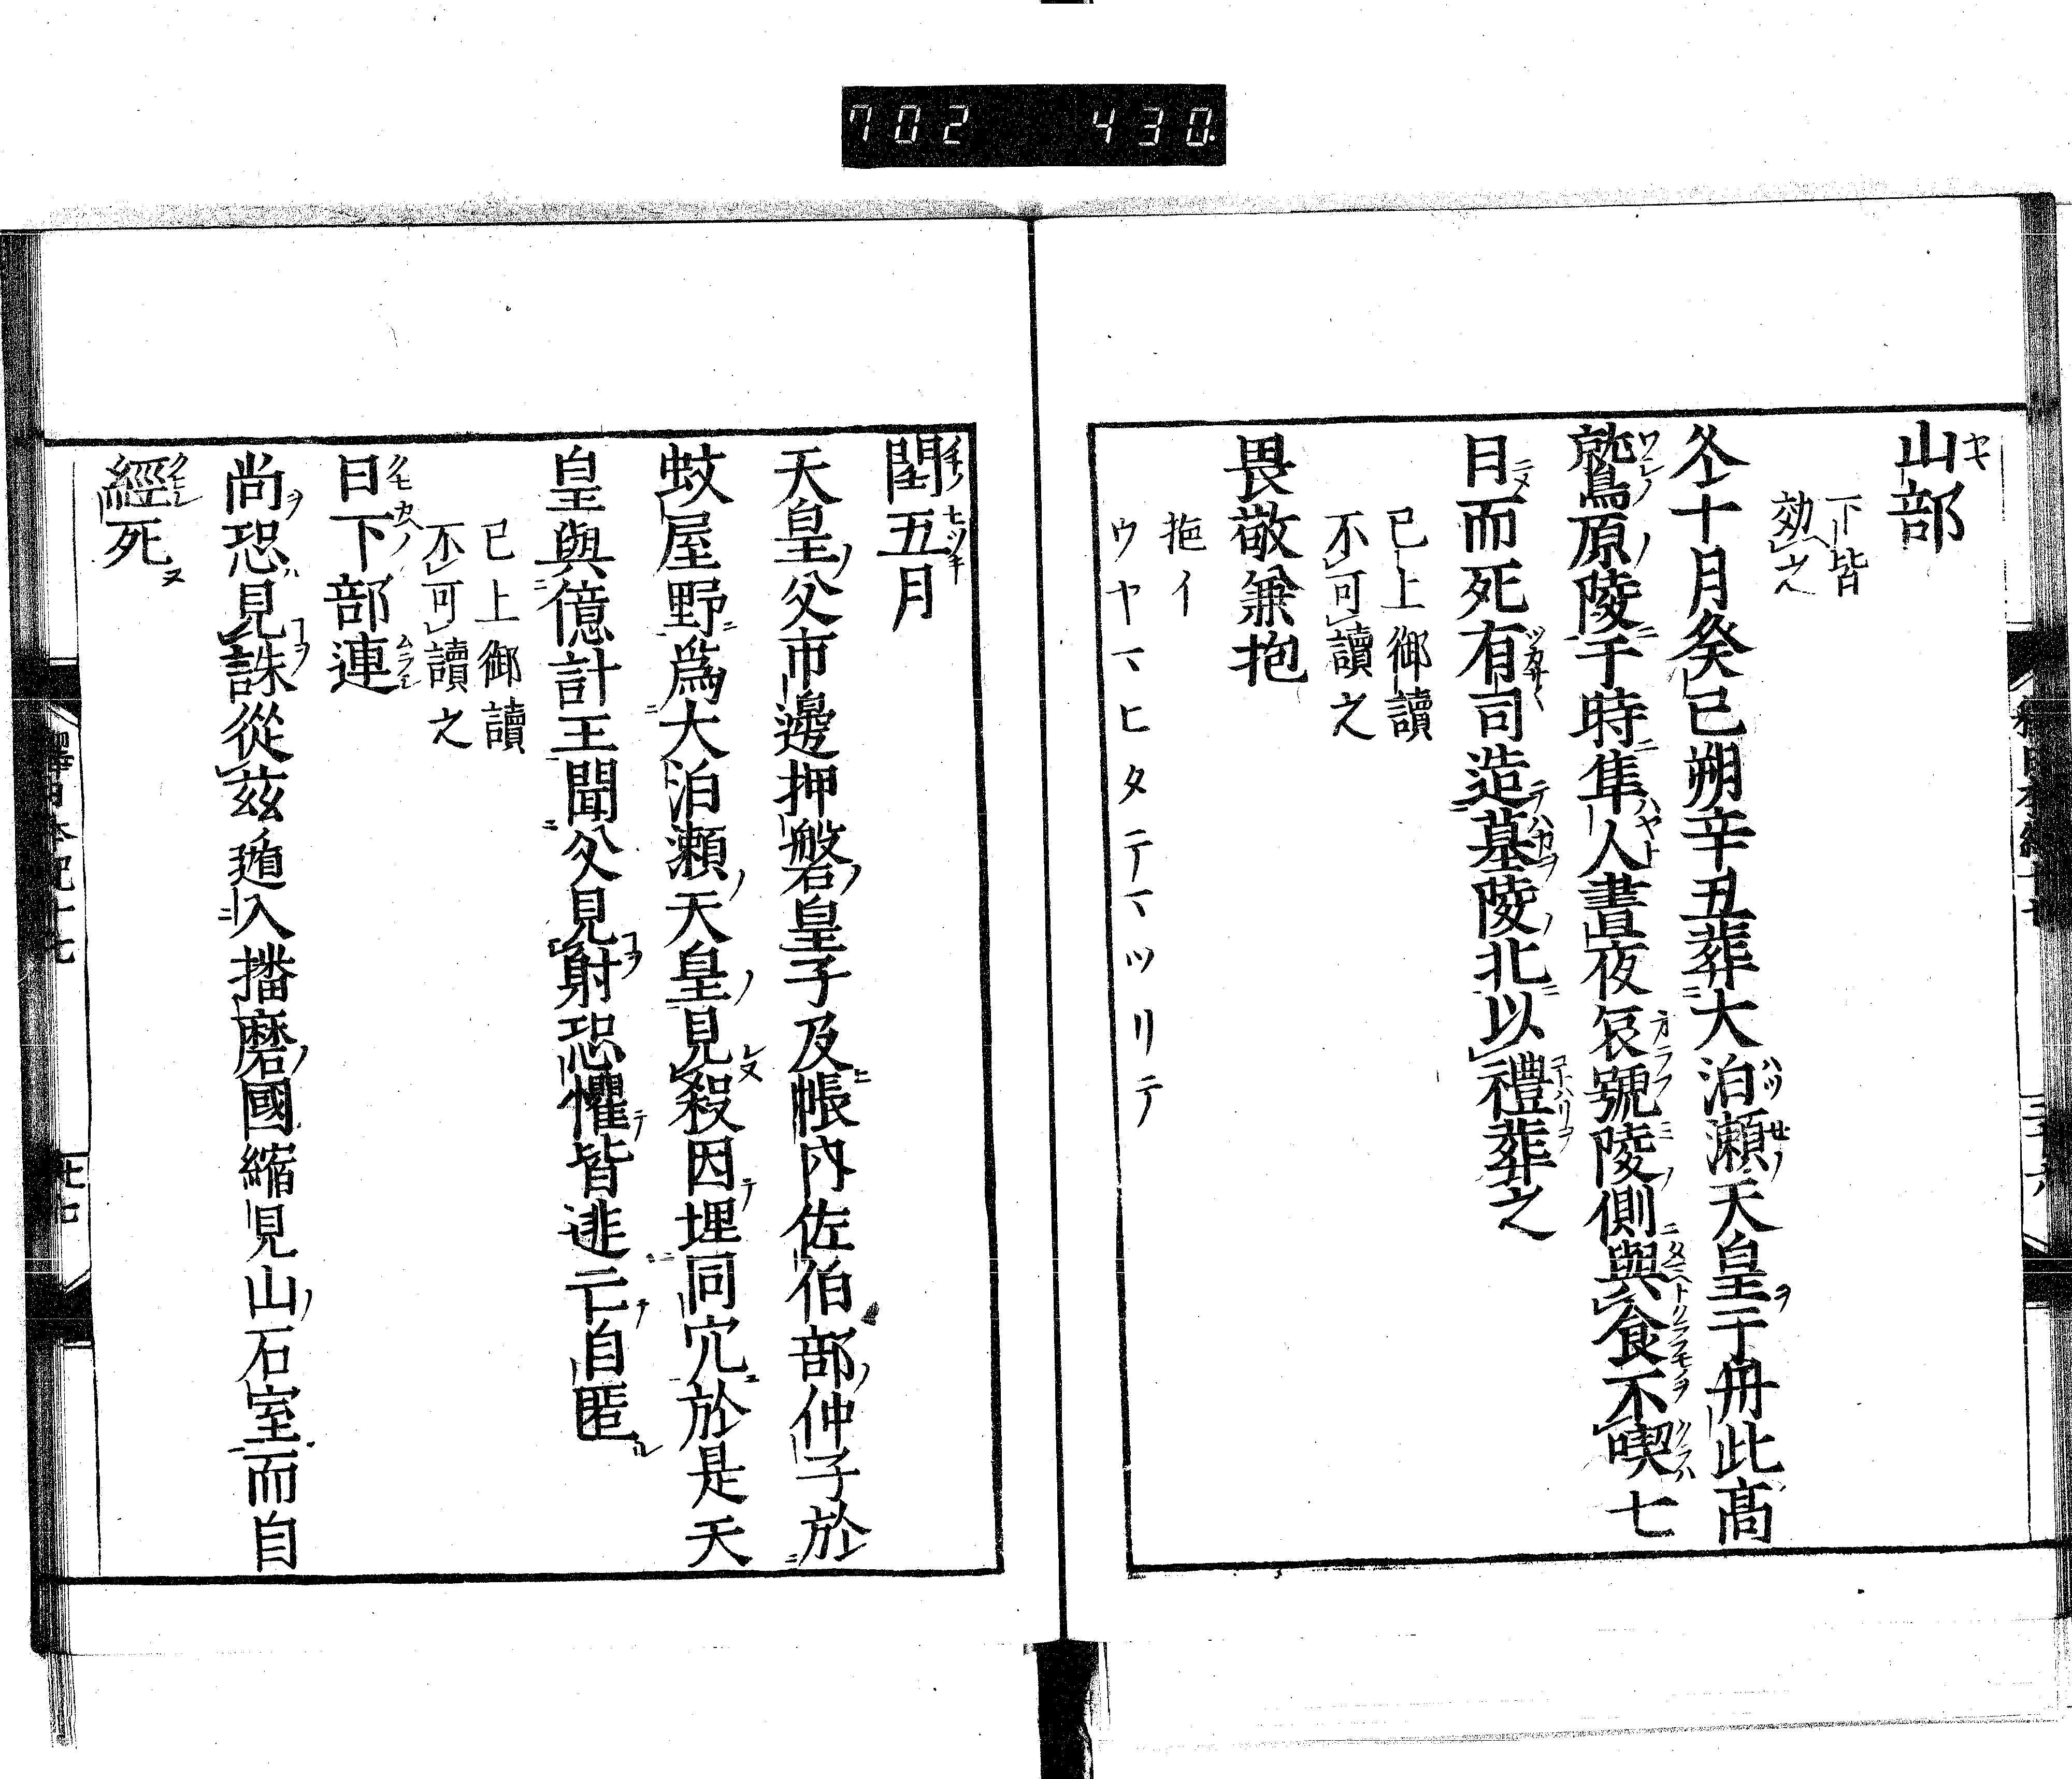 702 430
山部
下皆
効之
冬十月癸巳朔辛丑葬大泊瀬天皇于丹此高
鷲原陵于時隼人晝夜哀號陵側與食不喫七
日而死有司造墓陵北以禮葬之
已上御讀
不可讀之
畏敬兼抱
拖イ
ウヤマヒタテマツリテ
閏五月
天皇父市邊押磐皇子及帳内佐伯部仲子於
蚊屋野爲大泊瀬天皇見殺因埋同穴於是天
皇與億計王聞父見射恐懼皆逃亡自匿
已上御讀
不可讀之
日下部連
尚恐見誅從茲遁入播磨國縮見山石室而自
經死